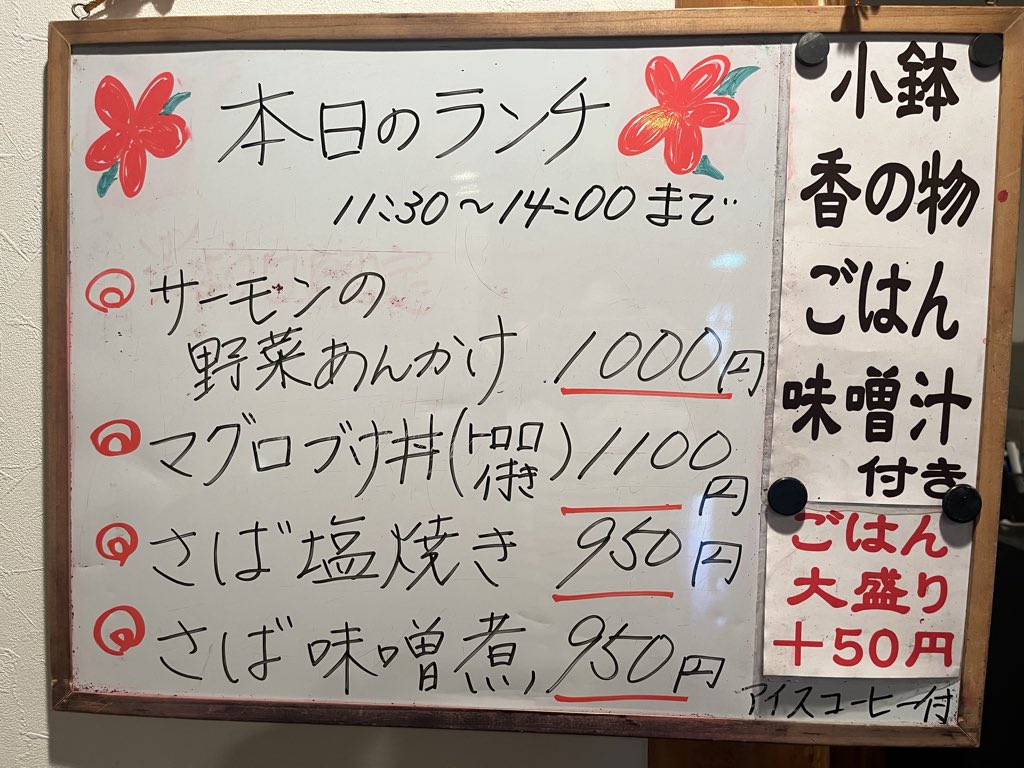 本日のランチ
11:30〜14:00まで
サーモンの
野菜あんかけ 1000円
マグロブツ丼(トロロ付き) 1100円
さば塩焼き 950円
さば味噌煮 950円
小鉢
香の物
ごはん
味噌汁
付き
ごはん
大盛り
+50円
アイスコーヒー付